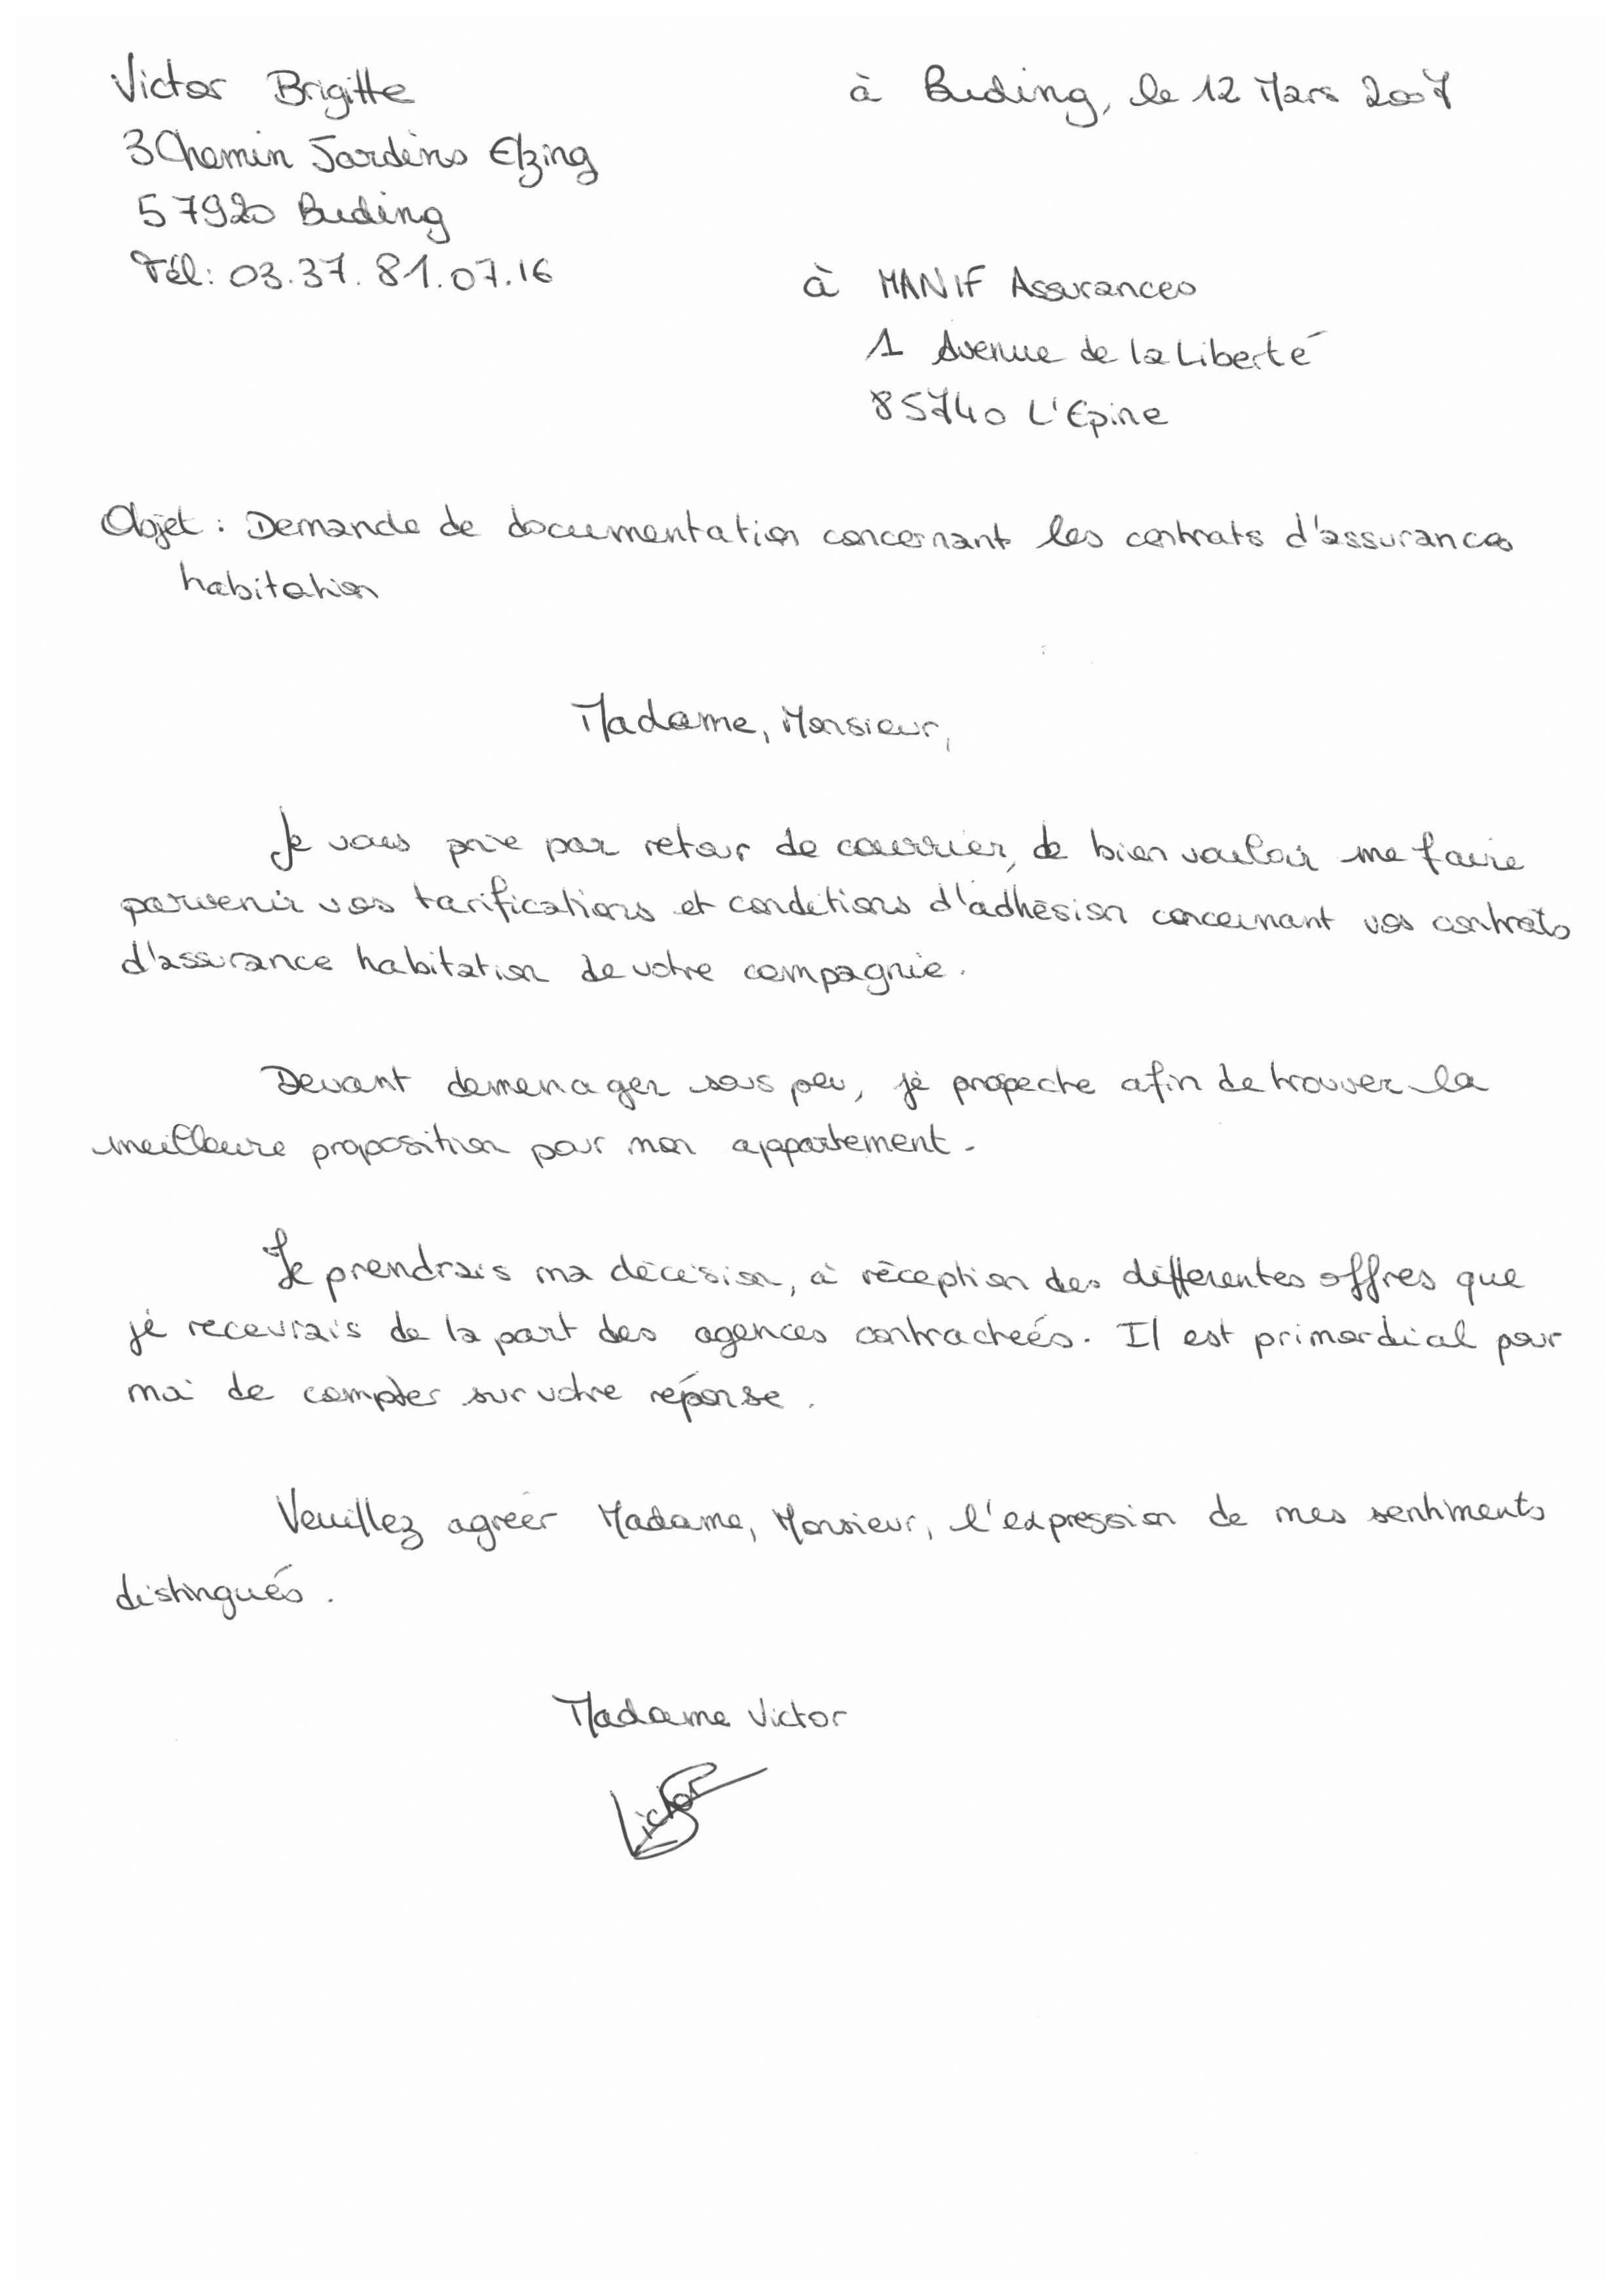 Victor Brigitte
à Buding, le 12 Mars 2007
3 Chemin Jardins Elzing
57920 Buding
Tél: 03.37.81.07.16
à MANIF Assurances
1 Avenue de la Liberté
85740 L'Epine
Objet : Demande de documentation concernant les contrats d'assurances
habitation
Madame, Monsieur,
Je vous prie par retour de courrier, de bien vouloir me faire
parvenir vos tarifications et conditions d'adhésion concernant vos contrats
d'assurance habitation de votre compagnie.
Devant demenager sous peu, je propecte afin de trouver la
meilleure proposition pour mon appartement.
Je prendrais ma décision, à réception des différentes offres que
je recevrais de la part des agences contractées. Il est primordial pour
moi de compter sur votre réponse.
Veuillez agréer Madame, Monsieur, l'expression de mes sentiments
distingués.
Madame Victor
Victor